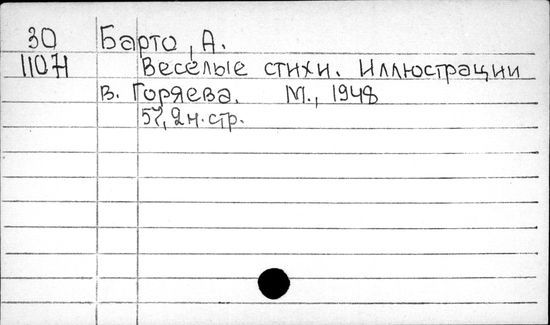 30 Барто, А.
11071 Веселые стихи. Иллюстрации
В. Горяева. М., 1948
57, 2 н. стр.